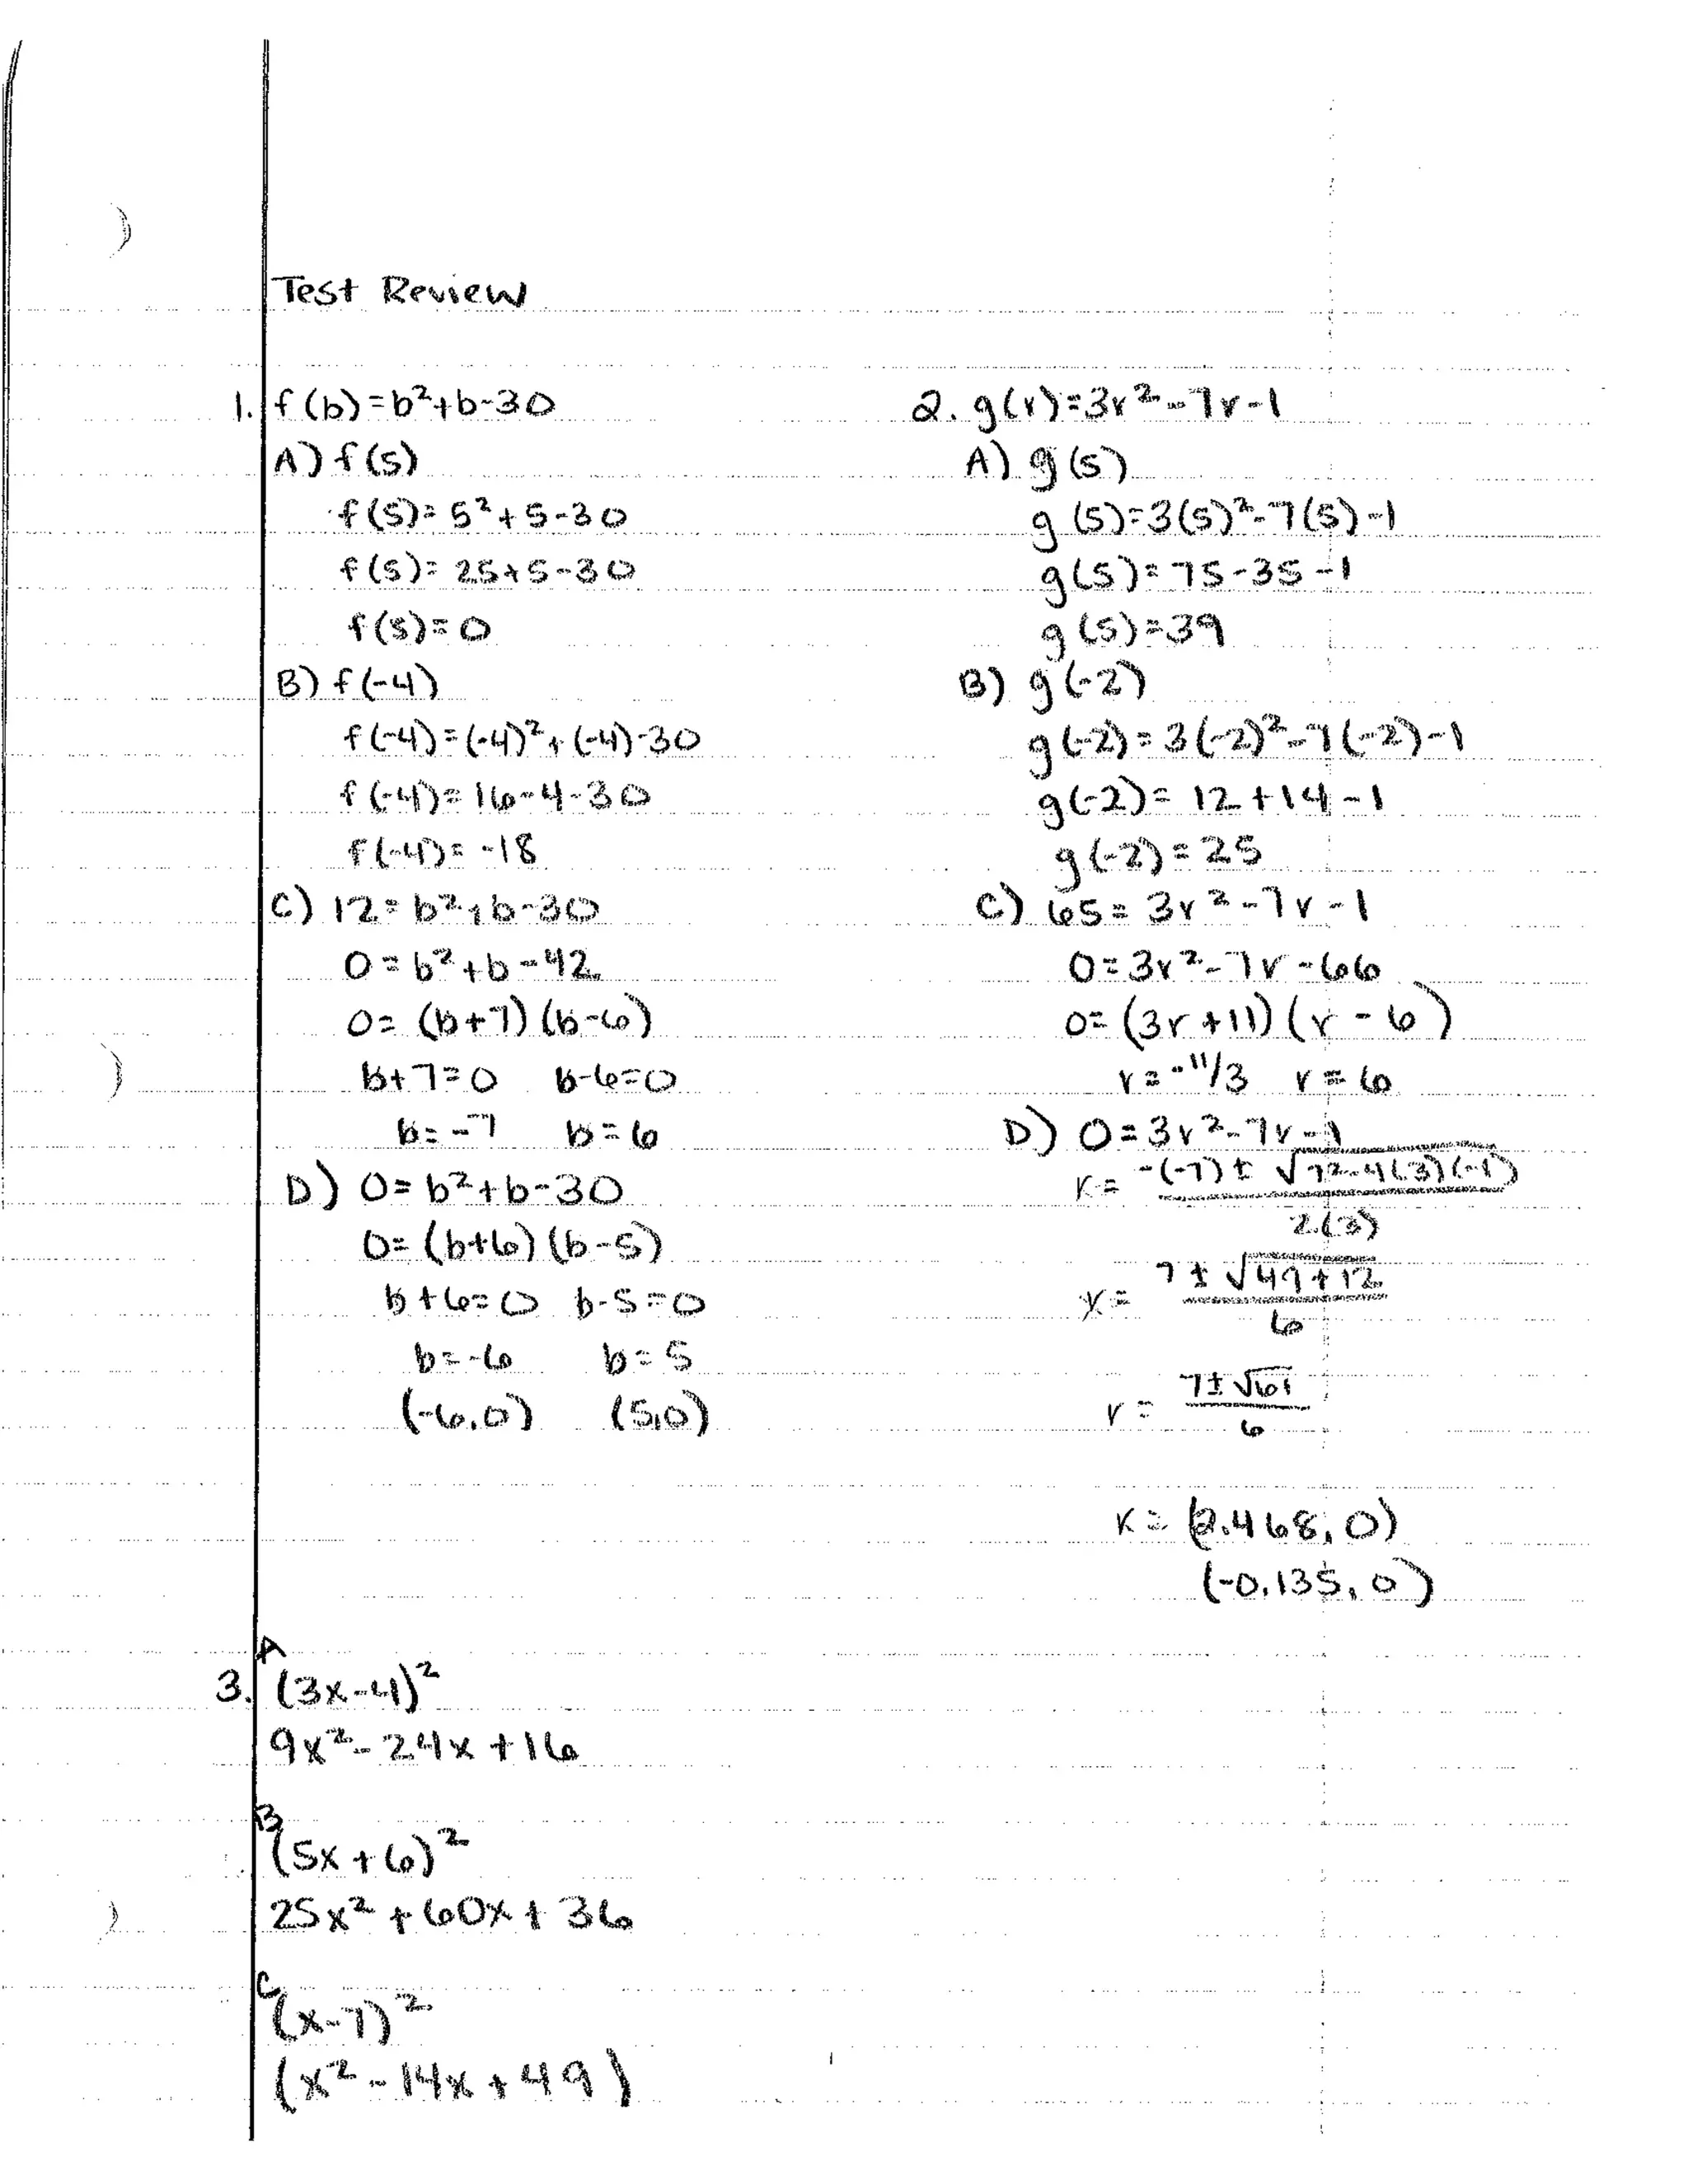 Test Review
1. f(b)=b²+b-30
A) f(5)
f(5)= 5²+5-30
f(5)= 25+5-30
f(5)=0
B) f(-4)
f(-4)=(-4)²+(-4)-30
f(-4)=16-4-30
f(-4)= -18
C) 12=b²+b-30
0=b²+b-42
0= (b+7)(b-6)
b+7=0 b-6=0
b=-7 b=6
D) 0=b²+b-30
0=(b+6)(b-5)
b+6=0 b-5=0
b=-6 b=5
(-6,0) (5,0)
2. g(r)=3r²-7r-1
A) g(5)
g(5)=3(5)²-7(5)-1
g(5)=75-35-1
g(5)=39
B) g(-2)
g(-2)=3(-2)²-7(-2)-1
g(-2)= 12+14-1
g(-2)=25
C) 65=3r²-7r-1
0=3r²-7r-66
0=(3r+11)(r-6)
r=-11/3 r=6
D) 0=3r²-7r-1
r= -(-7)± √7²-4(3)(-1)
2(3)
r= 7±√49+12
6
r= 7±√61
6
r= (2.468,0)
(-0.135,0)
A
3. (3x-4)²
9x²-24x+16
B
(5x+6)²
25x²+60x+36
C
(x-7)²
(x²-14x+49)